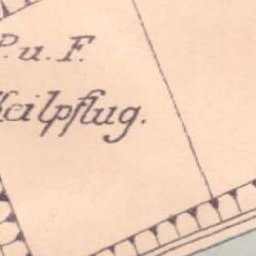 P. u. F.
Keilpflug.